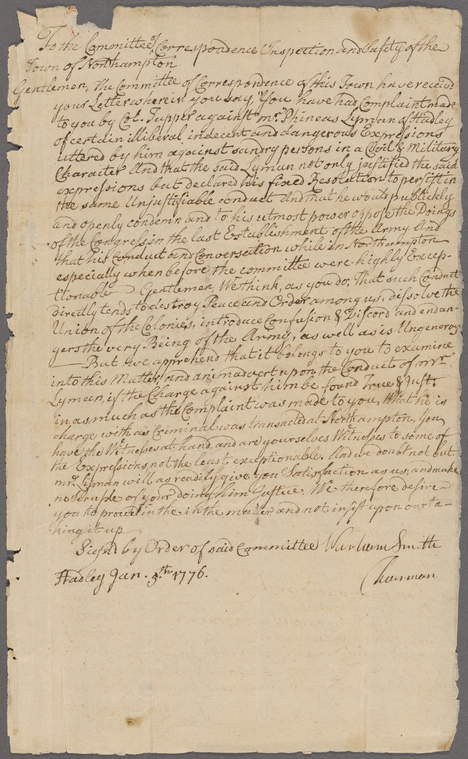 To the Committee of Correspondence Inspection and Safety of the
Town of Northampton
Gentlemen, The Committee of Correspondence of this Town have receivd
your Letter wherein you say, You have had Complaint made
to you by Col. Tupper against mr. Phineas Lyman of Hadley
of certain illiberal indecent and dangerous Expressions
uttered by him against sundry persons in a Civil & Military
Character And that the said Lyman not only justifyed the said
expressions but declared his fixed Resolution to persist in
the same Unjustifiable conduct And that he would publickly
and openly condemn and to his utmost power oppose the Doings
of the Congress in the last Establishment of the Army And
that his Conduct and Conversation while in Northampton
especially when before the committee were highly Excep-
tionable Gentlemen We think, as you do, that such Conduct
directly tends to destroy Peace and Order among us, dissolve the
Union of the Colonies, introduce Confusion & Discord and endan-
gers the very Being of the Army, as well as is Ungenerous
But we apprehend that it belongs to you to examine
into this Matter and animadvert upon the Conduct of mr.
Lyman, if the Charge against him be found True & Just.
in as much as the Complaint was made to you, What he is
charge with as Criminal was transacted at Northampton, You
have the Witnesses at hand, and are yourselves Witnesses to some of
the Expressions not the least exceptionable And we doubt not but
mr. Lyman will as readily give you Satisfaction as us, and make
no scruple of your doing him Justice. We therefore desire
you to proceed in the matter and not insist upon our ta-
king it up
Signd by Order of said Committee Warham Smith
Hadley Jan. 5th 1776. Chairman